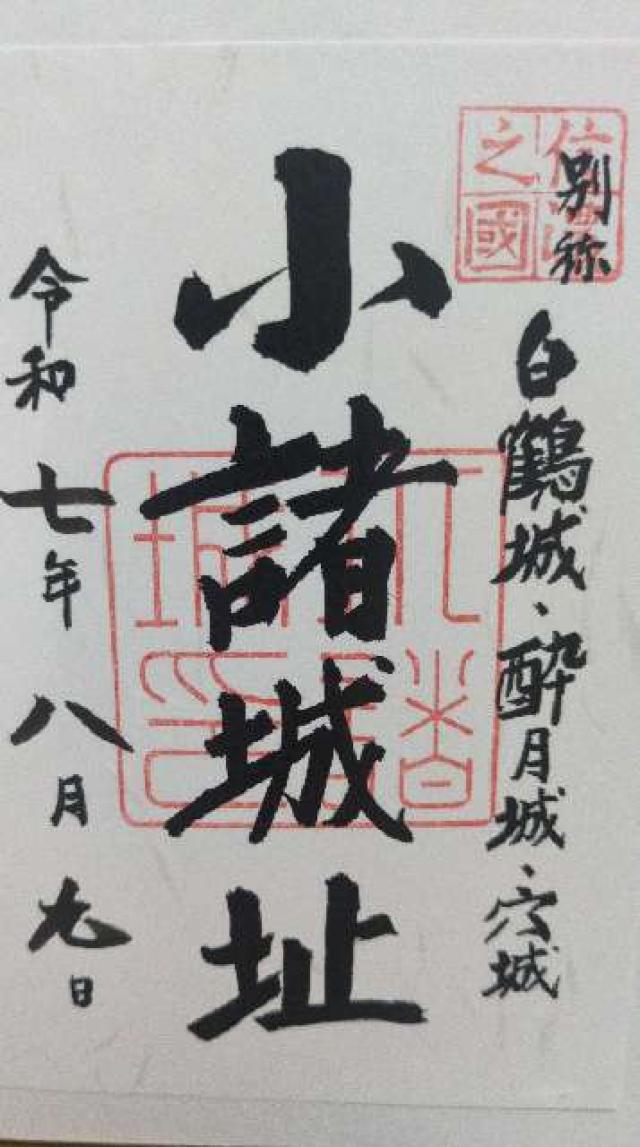 信濃之國
別称
白鶴城、酔月城、穴城
小諸城址
令和七年八月九日